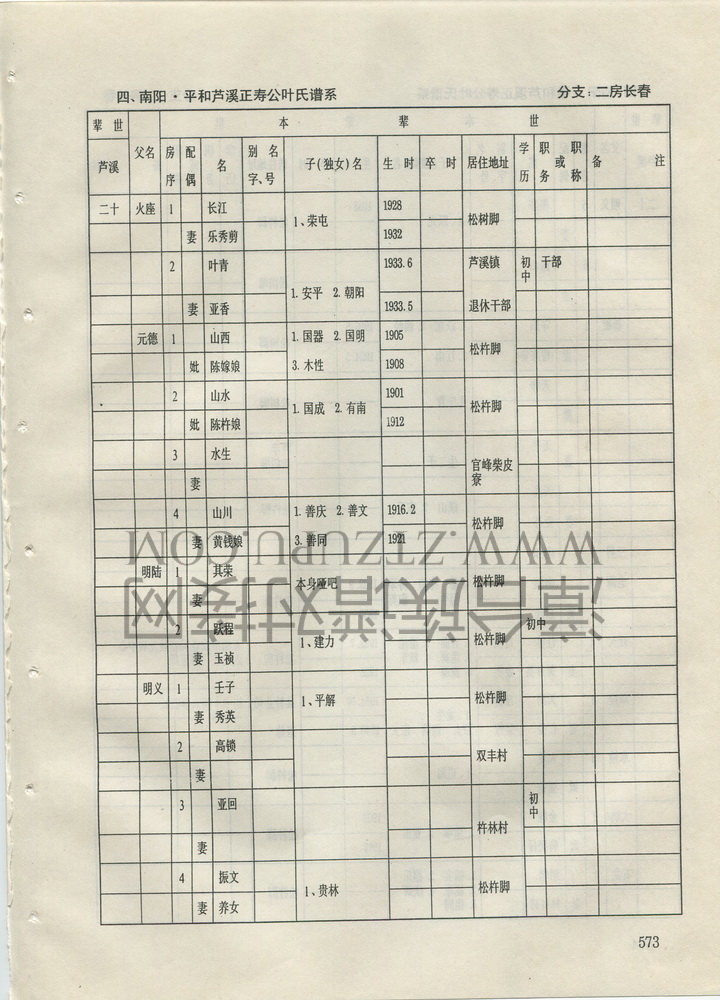 四、南阳·平和芦溪正寿公叶氏谱系 分支:二房长春
辈世 本 辈 世
芦溪 父名 房序 配偶 名 别名字、号 子(独女)名 生时 卒时 居住地址 学历 职务或职称 备注
二十 火座 1 长江 1、荣屯 1928 松树脚
妻 乐秀剪 1932
2 叶青 1.安平 2.朝阳 1933.6 芦溪镇 初中 干部
妻 亚香 1933.5 退休干部
元德 1 山西 1.国器 2.国明 1905 松杵脚
妣 陈嫁娘 3.木性 1908
2 山水 1.国成 2.有南 1901 松杵脚
妣 陈杵娘 1912
3 水生 官峰柴皮寮
妻
4 山川 1.善庆 2.善文 1916.2 松杵脚
妻 黄钱娘 3.善同 1921
明陆 1 其荣 本身哑吧 松杵脚
妻
2 跃程 1、建力 松杵脚 初中
妻 玉祯
明义 1 壬子 1、平解 松杵脚
妻 秀英
2 高锁 双丰村
妻
3 亚回 杵林村 初中
妻
4 振文 1、贵林 松杵脚
妻 养女
573
WWW.ZTZUPU.COM
漳台族谱对接网